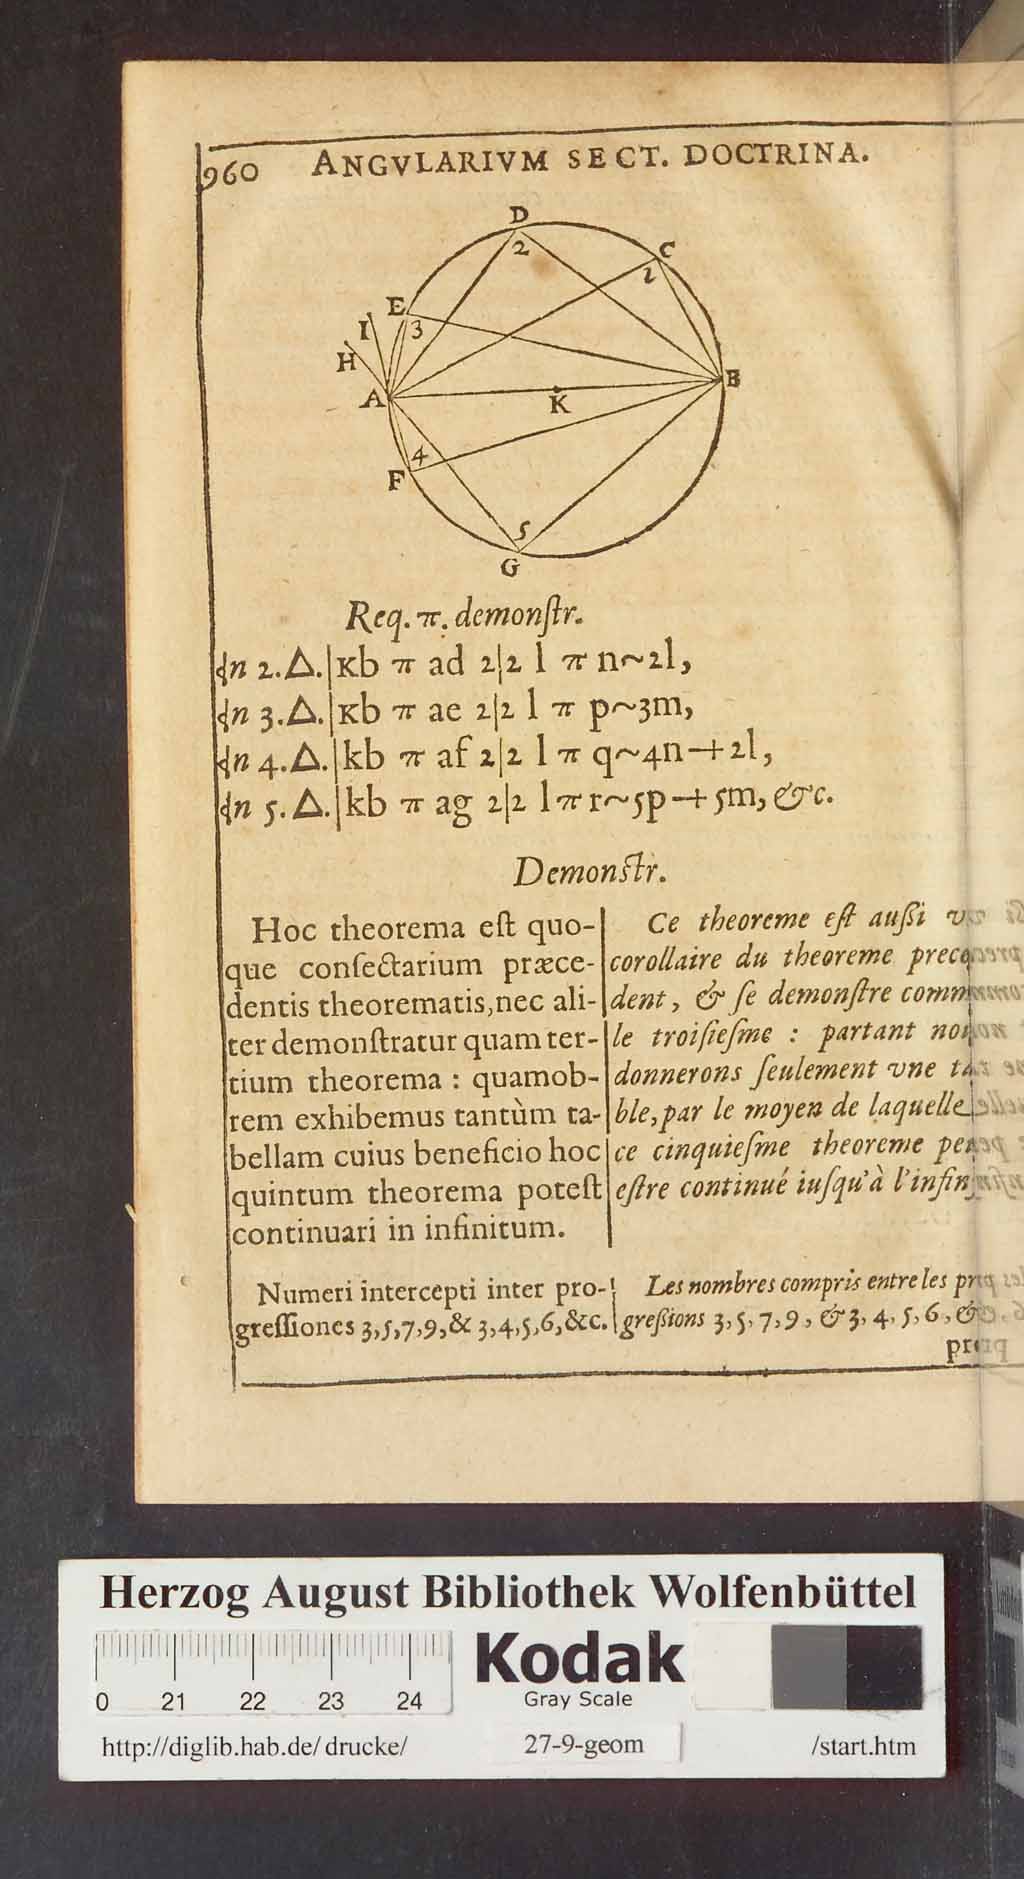 960 ANGVLARIVM SECT. DOCTRINA.
D
2
C
1
E
I
3
H
A
B
K
4
F
5
G
Req. π. demonſtr.
∢n 2.△.|κb π ad 2|2 l π n~2l,
∢n 3.△.|κb π ae 2|2 l π p~3m,
∢n 4.△.|kb π af 2|2 l π q~4n+2l,
∢n 5.△.|kb π ag 2|2 l π r~5p+5m, &c.
Demonſtr.
Hoc theorema eſt quo-
que conſectarium præce-
dentis theorematis, nec ali-
ter demonſtratur quam ter-
tium theorema : quamob-
rem exhibemus tantùm ta-
bellam cuius beneficio hoc
quintum theorema poteſt
continuari in infinitum.
Ce theoreme eſt auſſi
corollaire du theoreme prece
dent, & ſe demonſtre comm
le troiſieſme : partant
donnerons ſeulement vne ta
ble, par le moyen de laquelle
ce cinquieſme theoreme
eſtre continué iuſqu'à l'infin
Numeri intercepti inter pro-
greſſiones 3,5,7,9,& 3,4,5,6,&c.
Les nombres compris entre les pr
greſſions 3, 5, 7, 9, & 3, 4, 5, 6, &
Herzog August Bibliothek Wolfenbüttel
0 21 22 23 24
Kodak
Gray Scale
http://diglib.hab.de/drucke/ 27-9-geom /start.htm